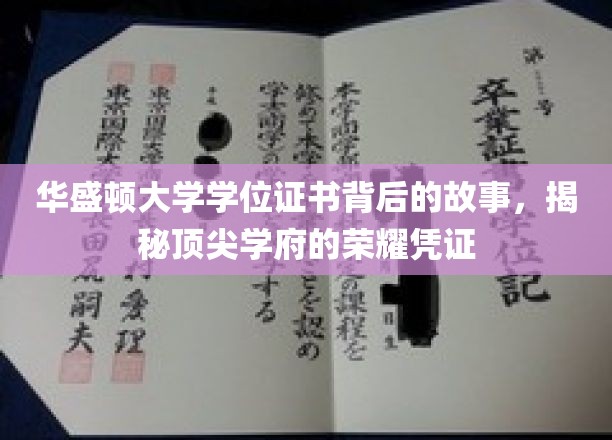 华盛顿大学学位证书背后的故事，揭
秘顶尖学府的荣耀凭证
第 号
卒業証書 学位記
本学商学部 定の課程を
修めて本学 ことを認め
学士(商学)の する
平成
東京国際大学 村愛理
東京国際大学 田尻嗣夫